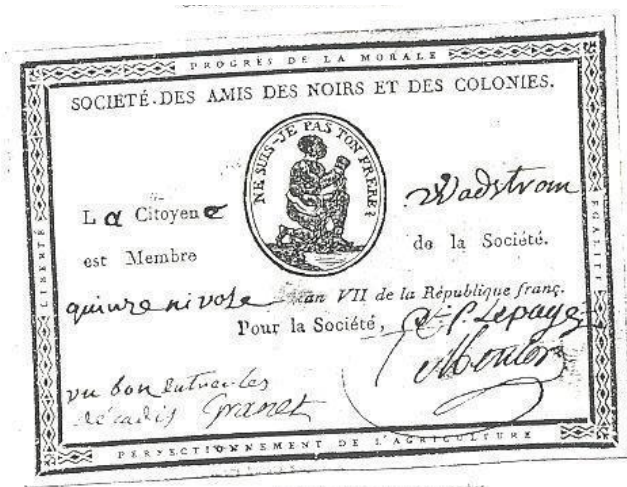 PROGRÈS DE LA MORALE
SOCIETÉ DES AMIS DES NOIRS ET DES COLONIES.
NE SUIS-JE PAS TON FRERE?
La Citoyene Wadstrom
est Membre de la Société.
quinze nivose an VII de la République franç.
Pour la Société, Lepage
vu bon
décadis Granet
LIBERTÉ
EGALITÉ
PERFECTIONNEMENT DE L'AGRICULTURE